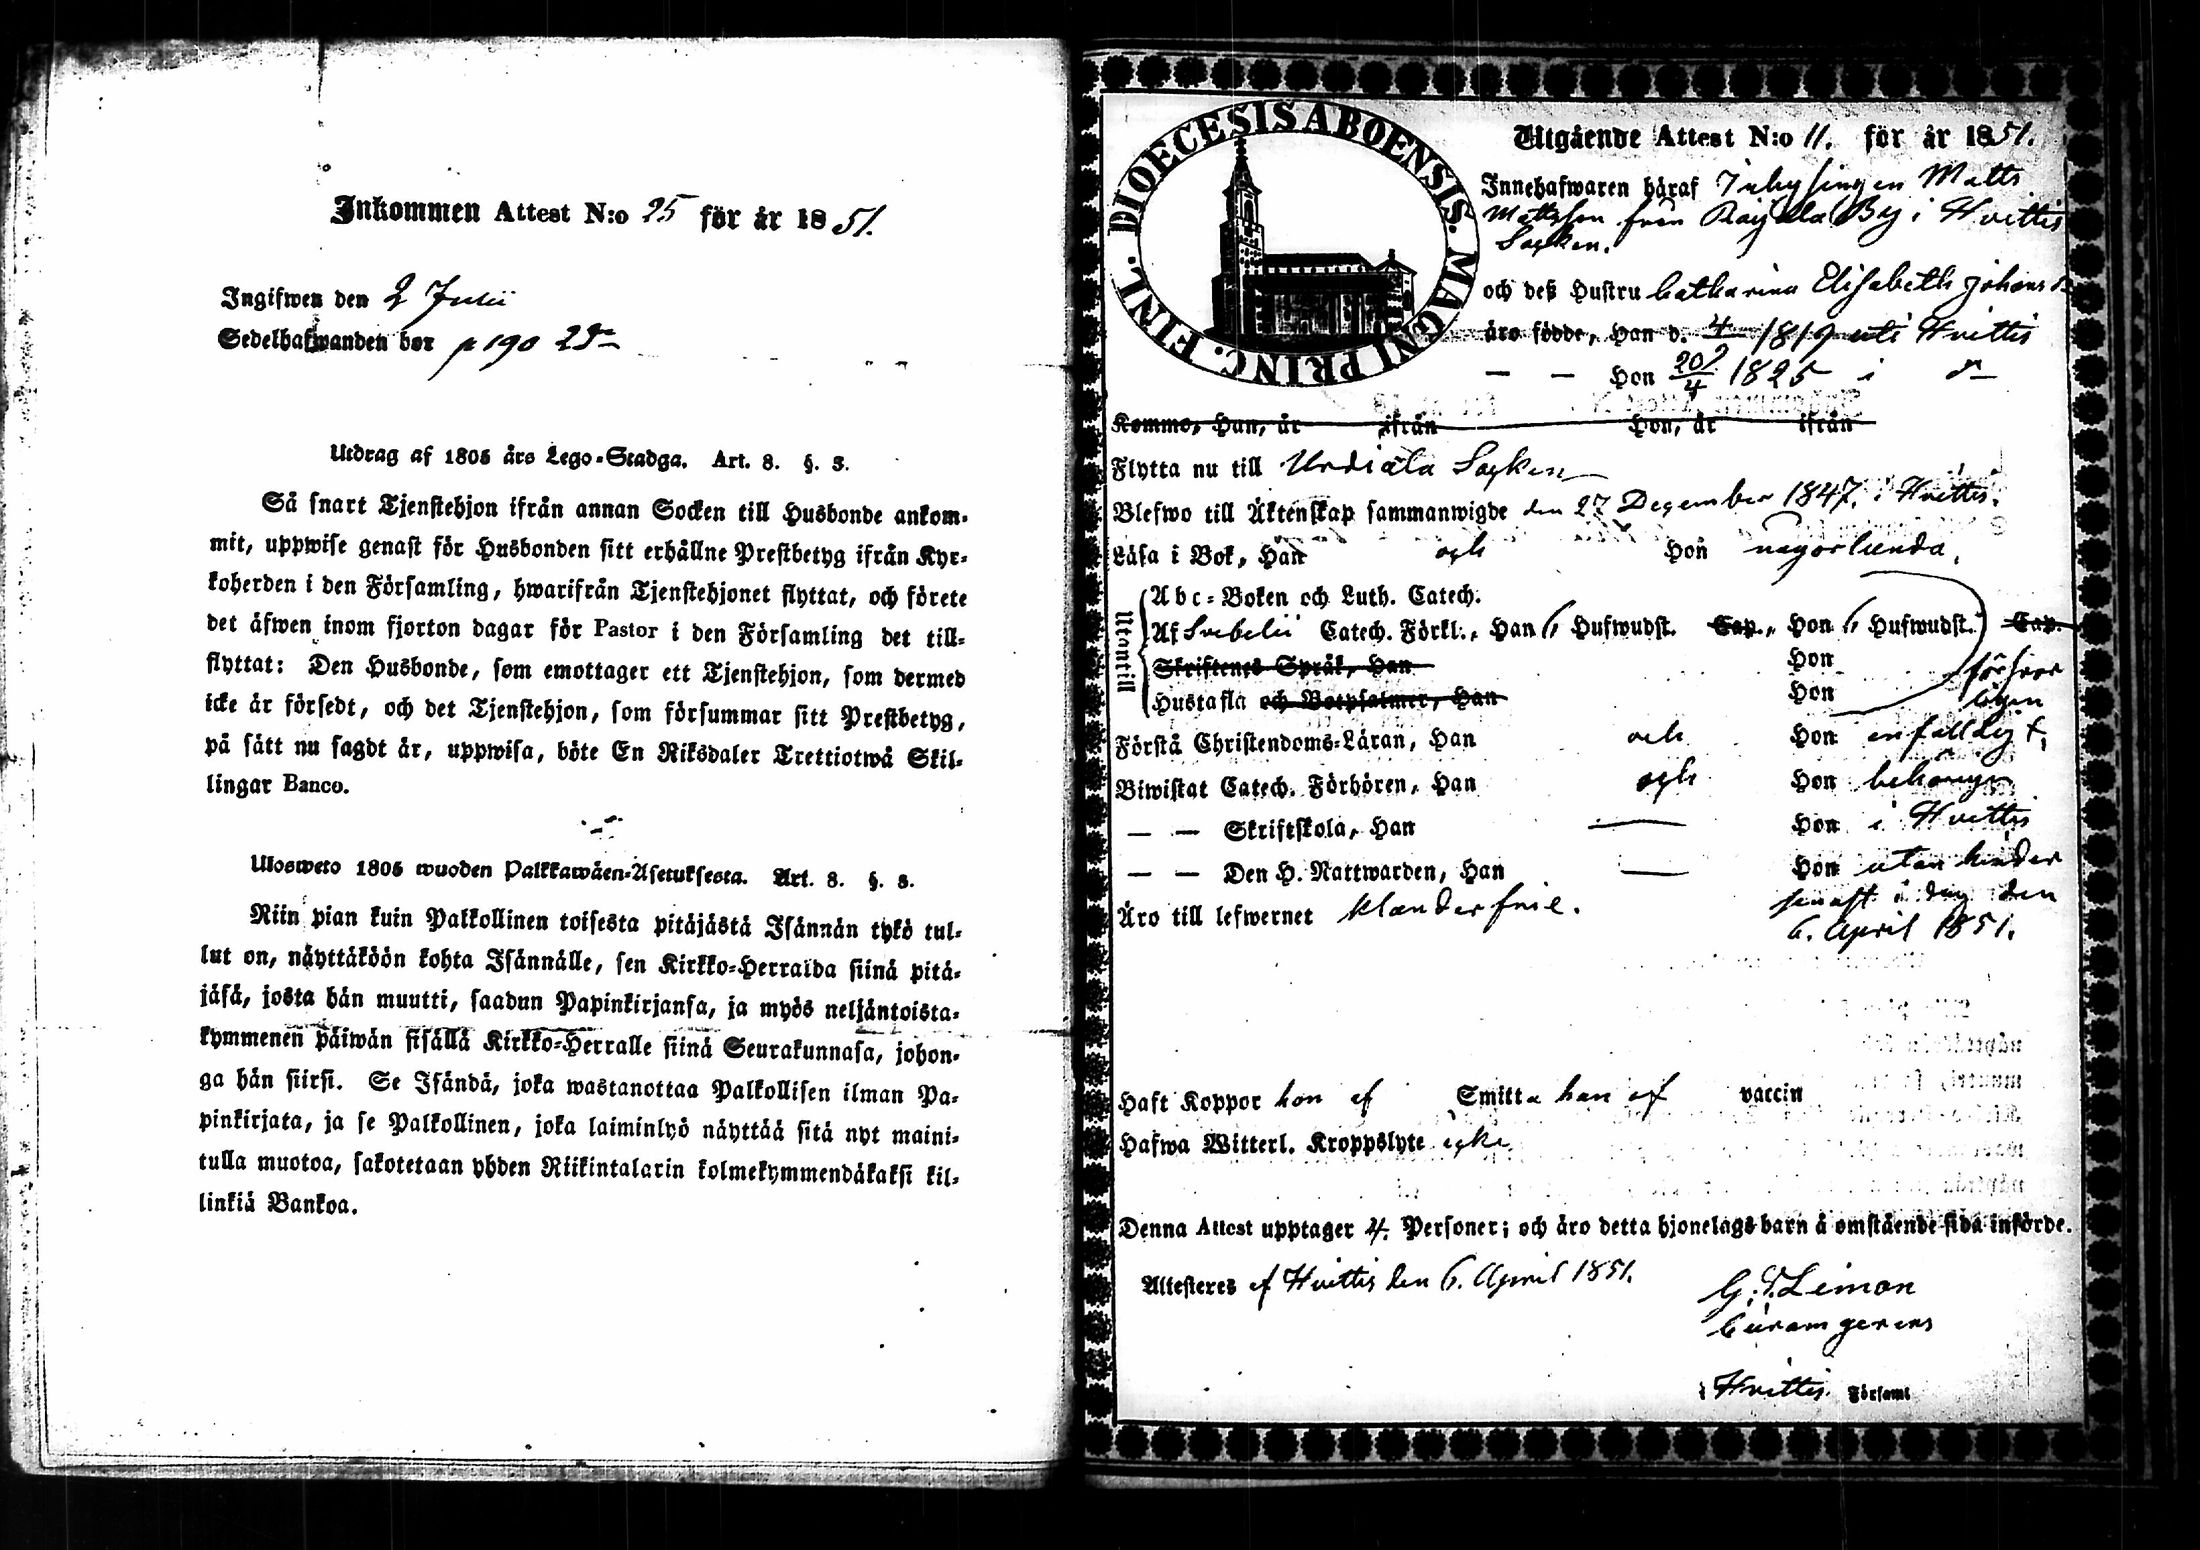 Inkommen Attest N:o 25 för år 1851.
Ingifwen den 2 Julii
Sedelhafwanden bor p 190
Utdrag af 1805 års Lego-Stadga. Art. 8. §. 3.
Så snart Tjenstehjon ifrån annan Socken till Husbonde ankom-
mit, uppwise genast för Husbonden sitt erhållne Prestbetyg ifrån Kyr-
koherden i den Församling, hwarifrån Tjenstehjonet flyttat, och förete
det äfwen inom fjorton dagar för Pastor i den Församling det till-
flyttat: Den Husbonde, som emottager ett Tjenstehjon, som dermed
icke är försedt, och det Tjenstehjon, som försummar sitt Prestbetyg,
på sätt nu sagdt är, uppwisa, böte En Riksdaler Trettiotwå Skil-
lingar Banco.
Ulosweto 1805 wuoden Palkkawäen-Asetuksesta. Art. 8. §. 3.
Niin pian kuin Palkollinen toisesta pitäjästä Isännän tykö tul-
lut on, näyttäköön kohta Isännälle, sen Kirkko-Herralda siinä pitä-
jäsä, josta hän muutti, saadun Papinkirjansa, ja myös neljäntoista-
kymmenen päiwän sisällä Kirkko-Herralle siinä Seurakunnasa, johon-
ga hän siirsi. Se Isändä, joka wastanottaa Palkollisen ilman Pa-
pinkirjata, ja se Palkollinen, joka laiminlyö näyttää sitä nyt maini-
tulla muotoa, sakotetaan yhden Riikintalarin kolmekymmendäkaksi kil-
linkiä Bankoa.
DIOECESIS ABOENSIS. MAGNI PRINC. FINL.
Utgående Attest N:o 11. för år 1851.
Innehafwaren häraf Inhysingen Matts
Mattsson från By i Hvittis
Socken.
och deß Hustru Catharina Elisabeth Johans dr
äro födde, Han d. 1819 uti Hvittis
— — Hon 20/4 1825 i do
Kommo, Han, år ifrån Hon, år ifrån
Flytta nu till Urdiala Socken
Blefwo till Äktenskap sammanwigde den 27 December 1847. i Hvittis.
Läsa i Bok, Han och Hon någorlunda.
Utantill
Abc-Boken och Luth. Catech.
Af Svebelii Catech. Förkl., Han 6 Hufwudst. Cap., Hon 6 Hufwudst. Cap.
Skriftenes Språk, Han Hon
Hustafla och Botpsalmer, Han Hon
Förstå Christendoms-Läran, Han och Hon enfalldigt,
Biwistat Catech. Förhören, Han och Hon behörigen
— — Skriftskola, Han — Hon i Hvittis
— — Den H. Nattwarden, Han — Hon utan hinder
senast i dag den
6. April 1851.
Äro till lefwernet klanderfrie.
Haft Koppor hon ej Smitta han af vaccin
Hafwa Witterl. Kroppslyte icke
Denna Attest upptager 4. Personer; och äro detta hjonelags barn å omstående sida införde.
Attesteres af Hvittis den 6. April 1851.
G. Limon
Curam gerens
i Hvittis Församl